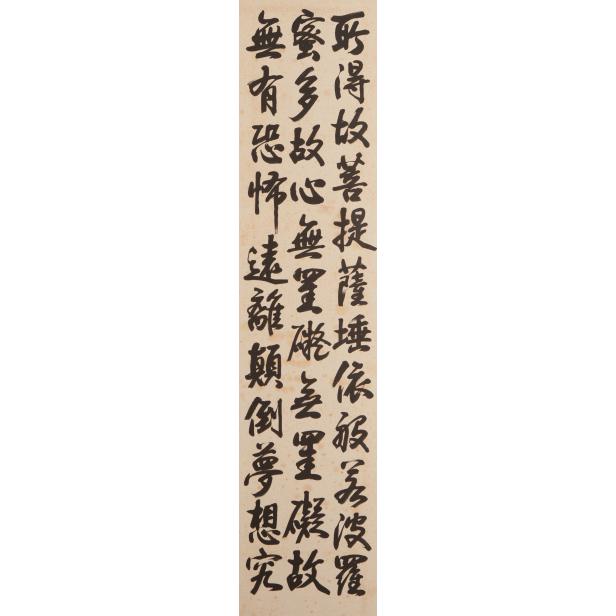 所得故菩提薩埵依般若波羅
蜜多故心無罣礙無罣礙故
無有恐怖遠離顛倒夢想究